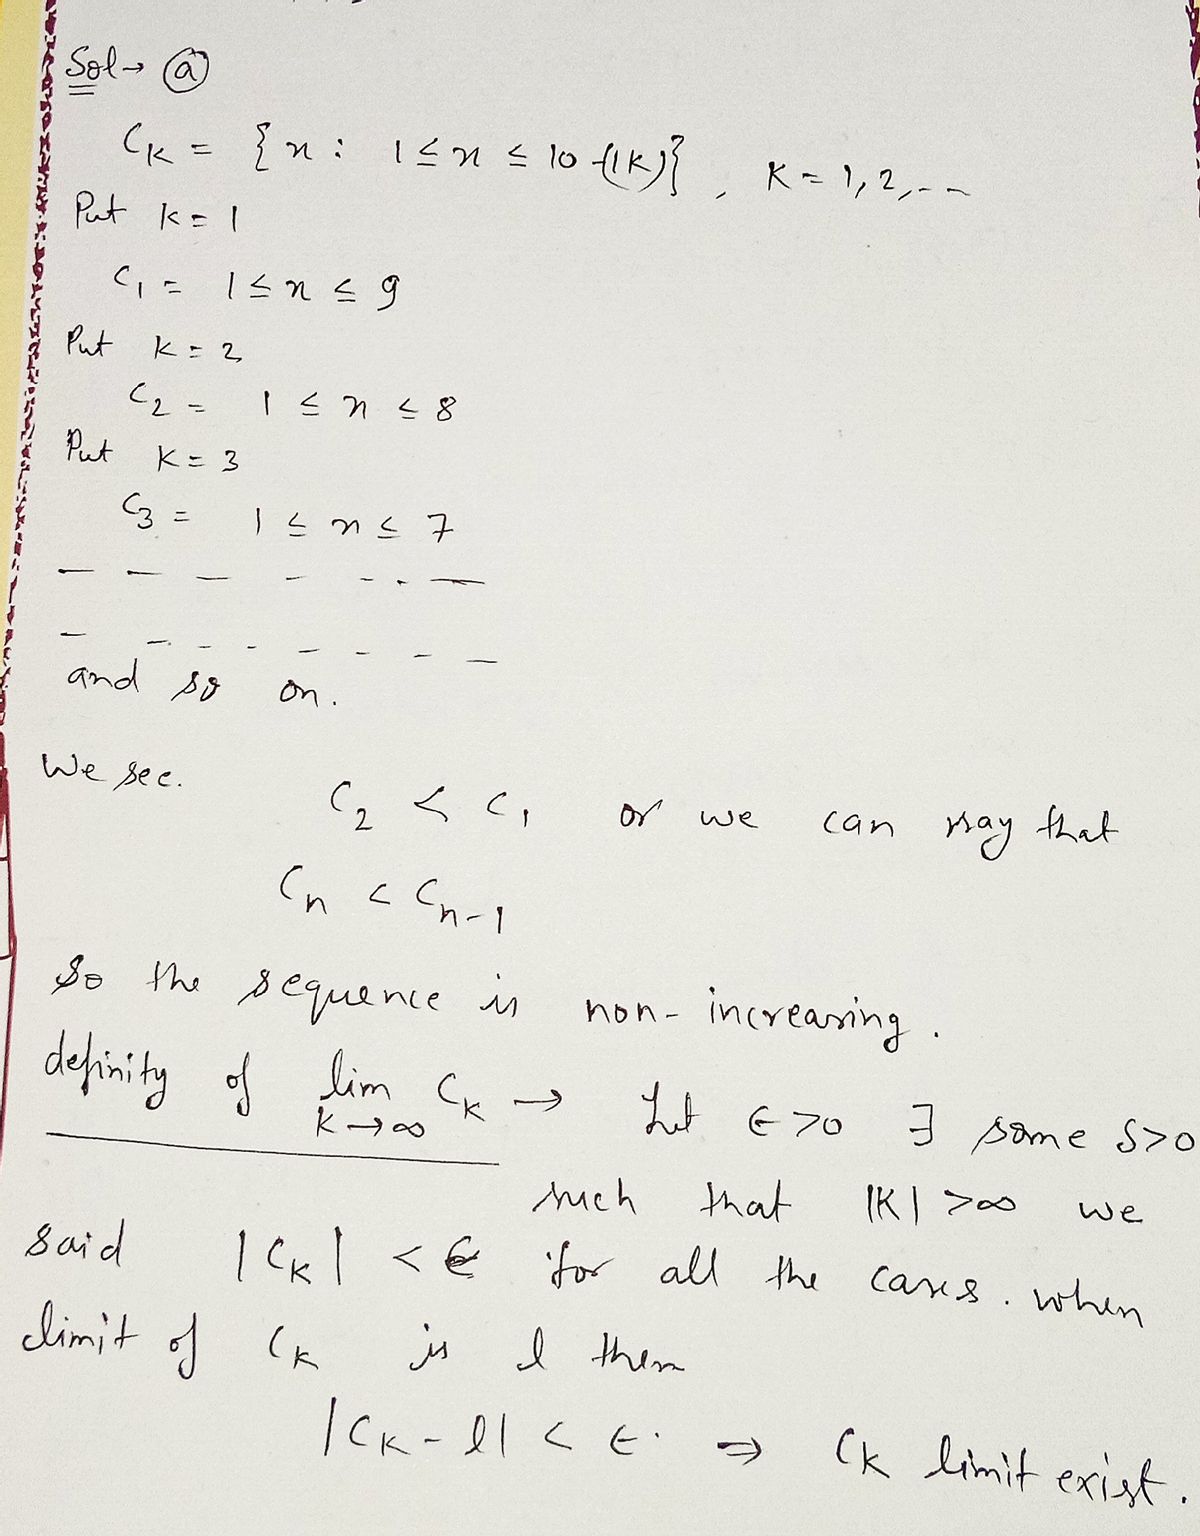 Sol → ⓐ
C_K = {n : 1 ≤ n ≤ 10 -(1K)} , K = 1, 2, --
Put K = 1
C_1 = 1 ≤ n ≤ 9
Put K = 2
C_2 = 1 ≤ n ≤ 8
Put K = 3
C_3 = 1 ≤ n ≤ 7
and so on.
We see.
C_2 < C_1 or we can say that
C_n < C_n-1
So the sequence is non-increasing.
definity of lim K→∞ C_K → Let ϵ > 0 ∃ some δ > 0
such that |K| > ∞ we
said |C_K| < ϵ for all the cases. when
limit of C_K is l then
|C_K - l| < ϵ. ⇒ C_K limit exist.